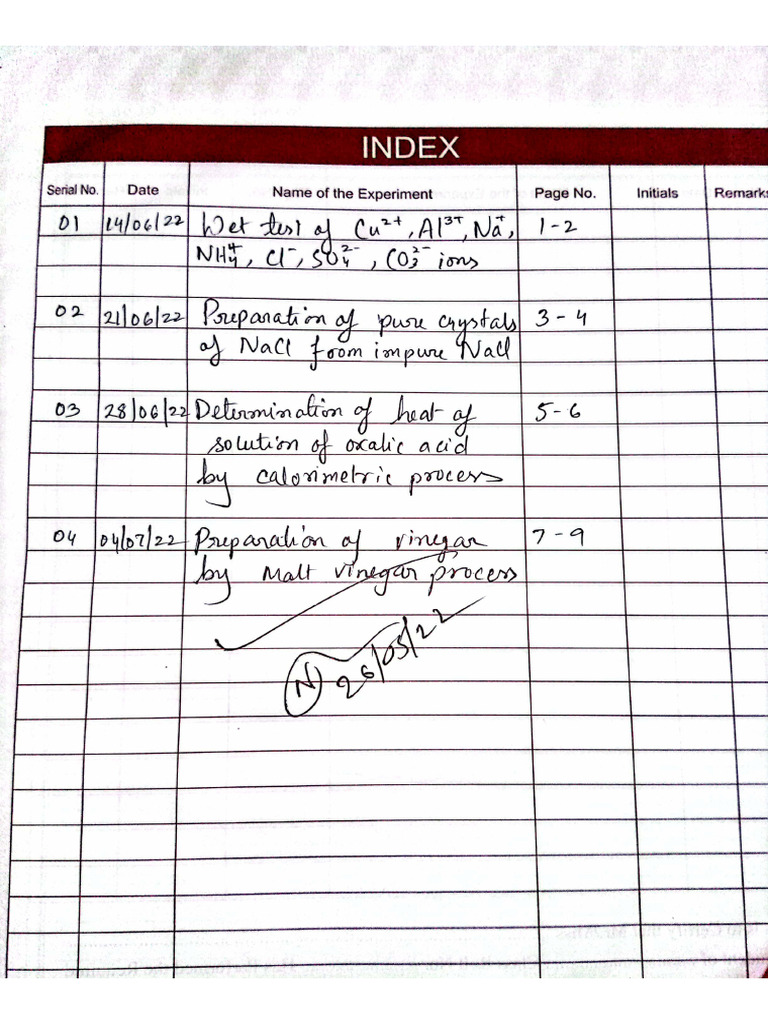 INDEX
Serial No. Date Name of the Experiment Page No. Initials Remarks
01 14/06/22 Wet test of Cu²⁺, Al³⁺, Na⁺, 1-2
NH₄⁺, Cl⁻, SO₄²⁻, CO₃²⁻ ions
02 21/06/22 Preparation of pure crystals 3-4
of NaCl from impure NaCl
03 28/06/22 Determination of heat of 5-6
solution of oxalic acid
by calorimetric process
04 04/07/22 Preparation of vinegar 7-9
by Malt vinegar process
N 26/05/22